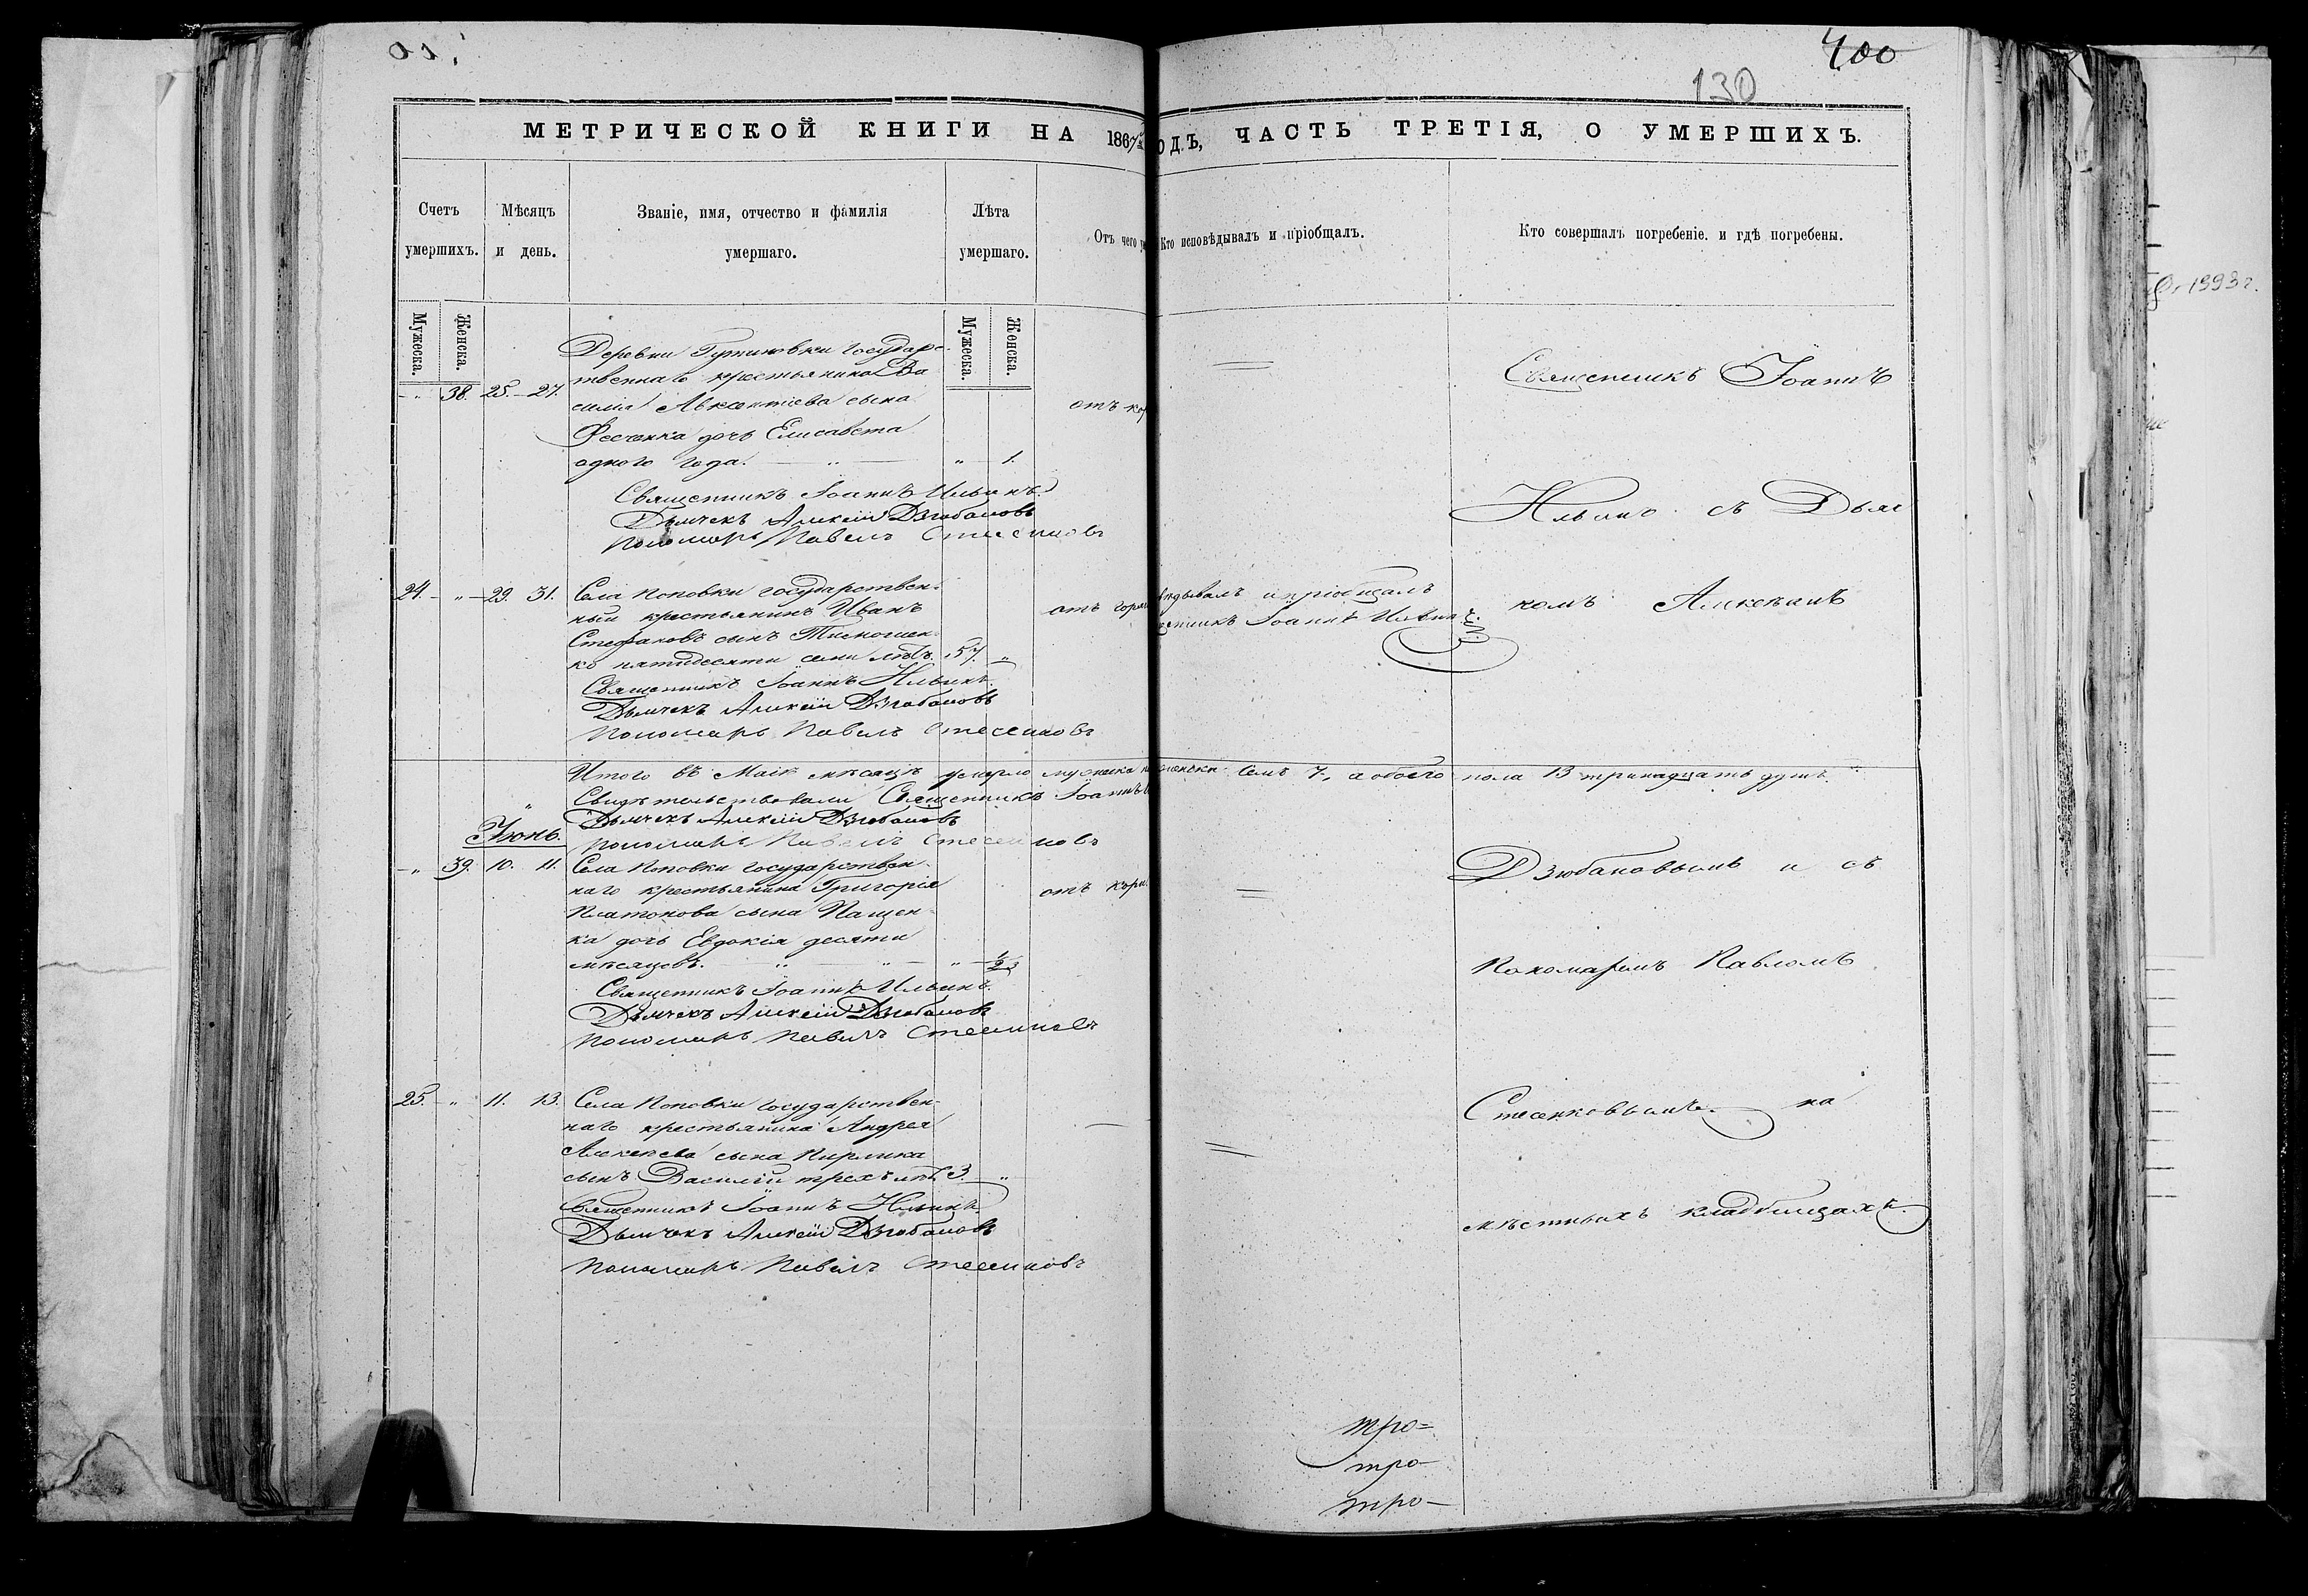 400
130
МЕТРИЧЕСКОЙ КНИГИ НА 1867 ОДЪ, ЧАСТЬ ТРЕТІЯ, О УМЕРШИХЪ.
Счетъ умершихъ.
Мѣсяцъ и день.
Званіе, имя, отчество и фамилія умершаго.
Лѣта умершаго.
Отъ чего
Кто исповѣдывалъ и пріобщалъ.
Кто совершалъ погребеніе. и гдѣ погребены.
Мужеска.
Женска.
Мужеска.
Женска.
" 38. 25. 27.
Деревни Государс-
твеннаго крестьянина Ва
силія Авксентіева сына
Фесенка дочь Елисавета
одного года. " " 1.
отъ кор
Священникъ Іоаннъ Ильинъ.
Дьячекъ Алексій Дзюбановъ
Пономарь Павелъ Стесенковъ
24. " 29. 31.
Села Поповки государствен-
ный крестьянинъ Иванъ
Стефановъ сынъ Тимошен-
ко пятидесяти семи лѣтъ. 57. "
отъ горяч
ѣдывалъ и пріобщалъ
щенникъ Іоаннъ Ильинъ.
Священникъ Іоаннъ Ильинъ.
Дьячекъ Алексій Дзюбановъ
Пономарь Павелъ Стесенковъ
Итого въ Маіѣ мѣсяцѣ умерло мужеска женска семь 7, а обоего пола 13 тринадцать душъ.
Свидѣтельствовали Священникъ Іоаннъ
Дьячекъ Алексій Дзюбановъ
Пономарь Павелъ Стесенковъ
Іюнь.
" 39. 10. 11.
Села Поповки государствен-
наго крестьянина Григорія
Платонова сына Пащен-
ка дочь Евдокія десяти
мѣсяцевъ. " " "
отъ кори
Священникъ Іоаннъ Ильинъ.
Дьячекъ Алексій Дзюбановъ
Пономарь Павелъ Стесенковъ
25. " 11. 13.
Села Поповки государствен-
наго крестьянина Андрея
Алексѣева сына Кирлика
сынъ Василій трехъ лѣтъ 3. "
Священникъ Іоаннъ Ильинъ.
Дьячекъ Алексій Дзюбановъ
Пономарь Павелъ Стесенковъ
Священникъ Іоаннъ
Ильинъ съ Дьяч
комъ Алексѣемъ
Дзюбановымъ и съ
Пономаремъ Павломъ
Стесенковымъ на
мѣстныхъ кладбищахъ.
тро-
тро-
тро-
1993 г.